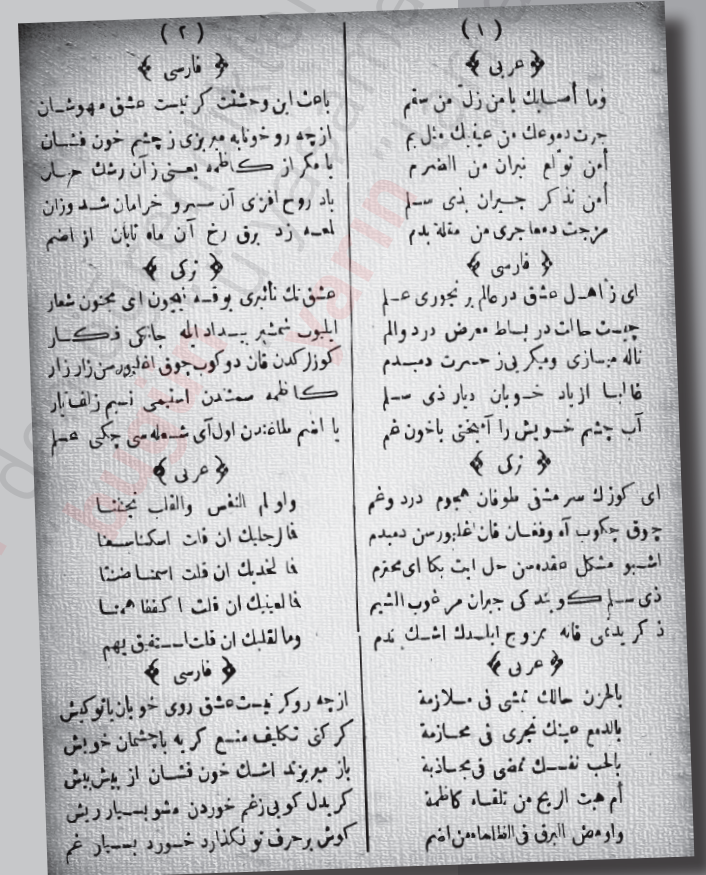 ( ١ )
﴿ عربی ﴾
وما أصابك يا من زل من سقم
جرت دموعك من عينيك مثل يم
أمن تولع نيران من الضرم
أمن تذكر جيران بذی سلم
مزجت دمعا جری من مقلة بدم
﴿ فارسی ﴾
ای ز اهل عشق در عالم بر نجوری علم
چیست حالت در بساط معرض درد والم
ناله میسازی ومیکر یی ز حسرت دمبدم
غالبا از یاد خوبان دیار ذی سلم
آب چشم خویش را آمیختی باخون غم
﴿ ترکی ﴾
ای کوزك سر مشق طوفان هجوم درد وغم
چوق چکوب آه وفغان قان اغلیورسن دمبدم
اشبو مشکل عقده سن حل ایت بکا ای محترم
ذی سلم کویند کی جیران مرغوب الشیم
ذکر یدمی قانه ممزوج ایلیدك اشك ندم
﴿ عربی ﴾
بالحزن حالك تمشی فی ملازمة
بالدمع عينك تجری فی محازمة
بالحب نفسك تمضی فی مجاذبة
أم هبت الريح من تلقاء كاظمة
واومض البرق فی الظلماء من اضم
( ٢ )
﴿ فارسی ﴾
باعث این وحشتت کر نیست عشق مهوشان
از چه رو خونابه میریزی ز چشم خون فشان
یا مکر از کاظمه یعنی ز آن رشك
باد روح افزای آن سرو خرامان شد وزان
لمعه زد برق رخ آن ماه تابان از اضم
﴿ ترکی ﴾
عشق نك تأثیری یوقسه نیچون ای مجنون شعار
ایلیوب شمشیر بیداد الیه جانکی فکار
کوزلر کدن قان دوکوب چوق اغلیورسن زار زار
کاظمه سمتندن اسنیمی نسیم زلف یار
یا اضم طاغندن اول آی شعله سی چکی علم
﴿ عربی ﴾
واولم النفس والقلب نجتنا
فالرجليك ان قلت اسكنا سعتا
فالخديك ان قلت اسمنا ضنتا
فالعينيك ان قلت اكففا همتا
وما لقلبك ان قلت استفق يهم
﴿ فارسی ﴾
از چه روکر نیست عشق روی خوبان باتو کیش
کر کنی تکلیف منع کریه باچشمان خویش
باز میریزند اشك خون فشان از پیش پیش
کر بدل کویی زغم خوردن مشو بسیار ریش
کوش بر حرف تو نکذارد خورد بسیار غم
bugün
yarın